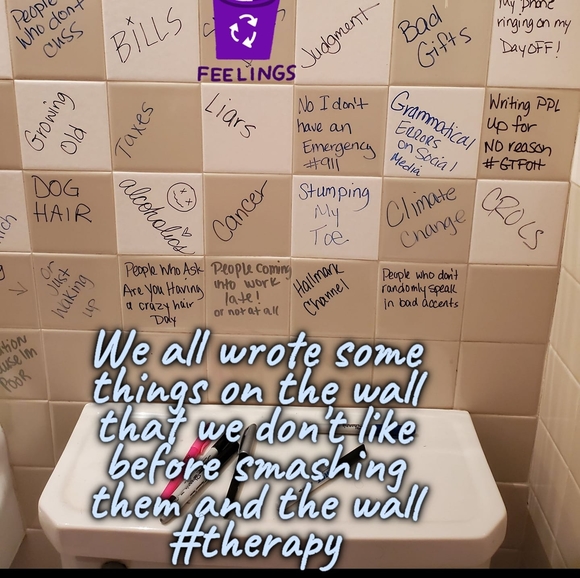 People
Who don't
CUSS
BILLS
FEELINGS
Judgment
Bad
Gifts
My phone
ringing on my
DAY OFF!
Growing
Old
Taxes
Liars
No I don't
have an
Emergency
#911
Grammatical
Errors
on Social
Media
Writing PPL
Up for
NO reason
#GTFOH
DOG
HAIR
alcoholics
Cancer
Stumping
My
Toe
Climate
Change
CROCS
or
Just
waking
up
People Who Ask
Are You Having
a crazy hair
Day
People coming
into work
late!
or not at all
Hallmark
Channel
People who don't
randomly speak
in bad accents
POOR
We all wrote some
things on the wall
that we don't like
before smashing
them and the wall
#therapy